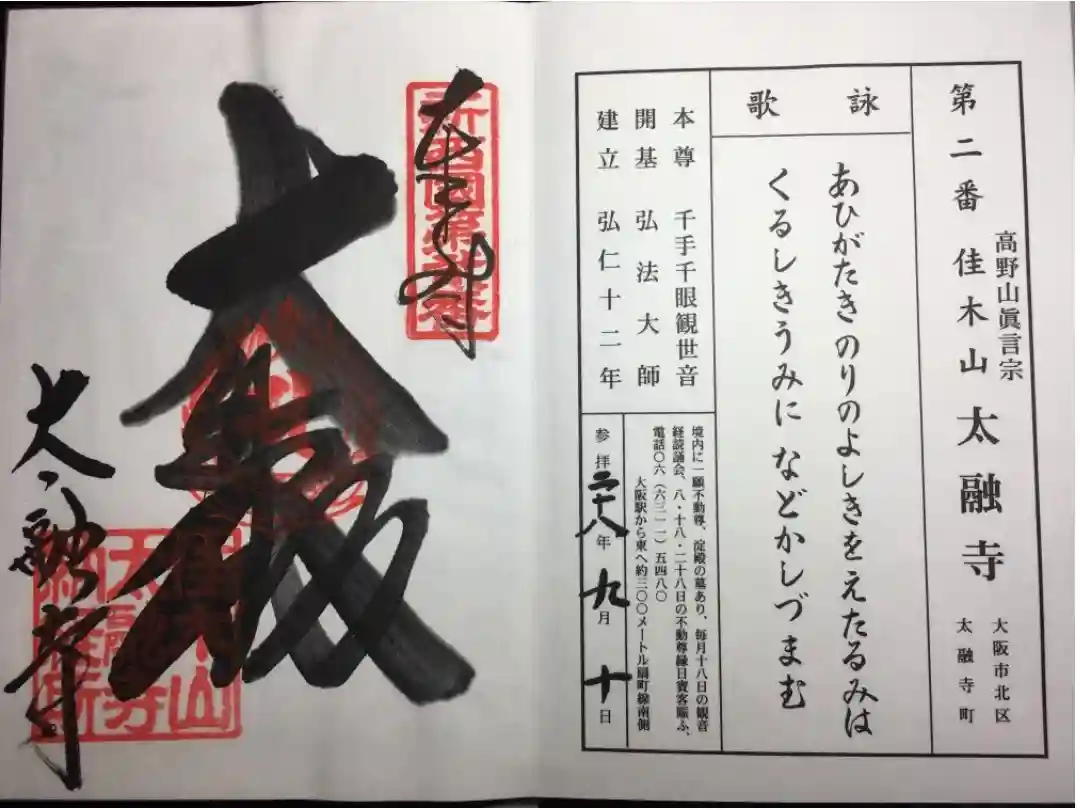 高野山眞言宗
第二番 佳木山 太融寺
大阪市北区
太融寺町
詠歌
あひがたき のりのよしきをえたるみは
くるしきうみに などかしづまむ
本尊 千手千眼観世音
開基 弘法大師
建立 弘仁十二年
境内に一願不動尊、淀殿の墓あり、毎月十八日の観音
経読誦会、八・十八・二十八日の不動尊縁日賓客賑ふ、
電話〇六(六三一一)五四八〇
大阪駅から東へ約三〇〇メートル扇町線南側
参拝二十八年九月十日
奉拝
新西國第弐番
大悲殿
太融寺